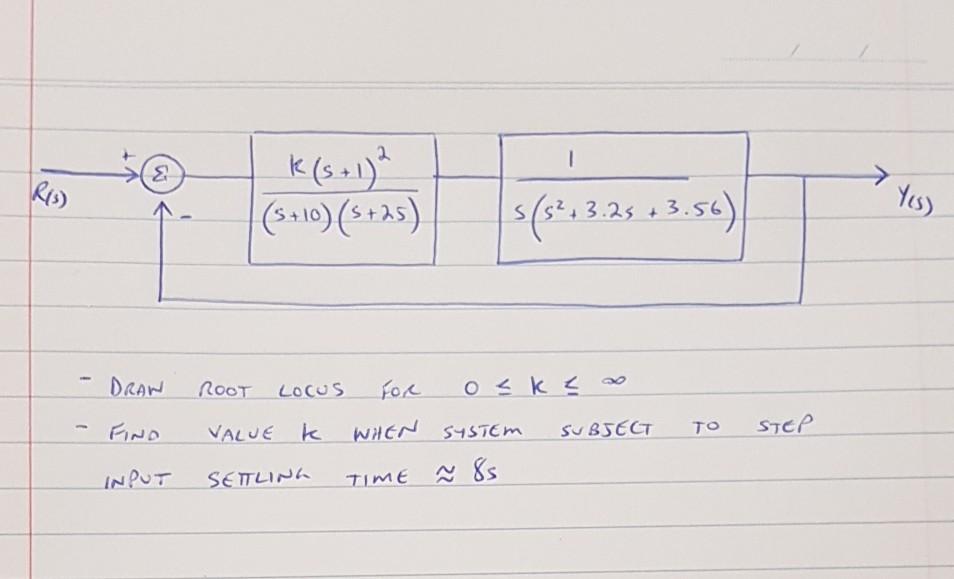 / /
+
R(s)
Σ
-
K(s+1)²
(s+10)(s+25)
1
s(s²+3.2s+3.56)
Y(s)
- DRAW ROOT LOCUS FOR 0 ≤ K ≤ ∞
- FIND VALUE K WHEN SYSTEM SUBJECT TO STEP
INPUT SETTLING TIME ≈ 8s